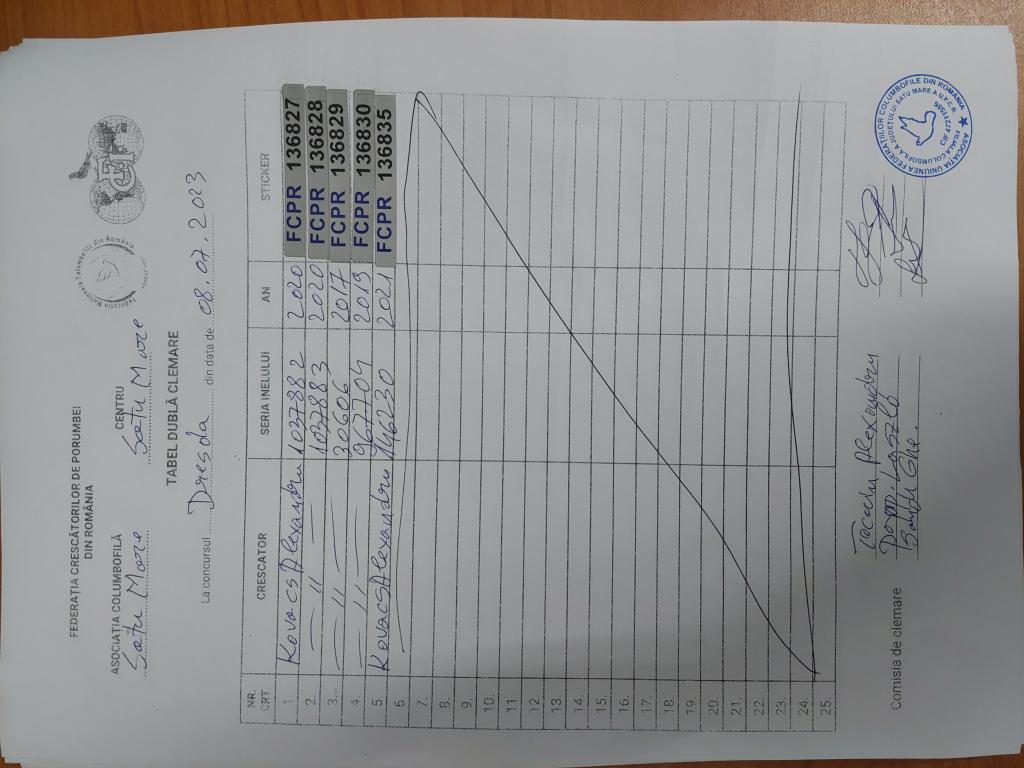 FEDERAȚIA CRESCĂTORILOR DE PORUMBEI
DIN ROMÂNIA
ASOCIAȚIA COLUMBOFILĂ CENTRU
Satu Mare Satu Mare
TABEL DUBLĂ CLEMARE
La concursul Dresda din data de 08.07.2023
NR. CRT. CRESCATOR SERIA INELULUI AN STICKER
1. Kovacs Alexandru 1037882 2020 FCPR 136827
2. — 11 — 1037883 2020 FCPR 136828
3. — 11 — 30606 2017 FCPR 136829
4. — 11 — 967704 2019 FCPR 136830
5 Kovacs Alexandru 146230 2021 FCPR 136835
6.
7.
8.
9.
10.
11
12.
13.
14.
15.
16.
17.
18.
19.
20.
21.
22.
23.
24.
25.
Comisia de clemare
Alexandru
ASOCIAȚIA UNIUNEA FEDERAȚIILOR COLUMBOFILE DIN ROMÂNIA
FILIALA COLUMBOFILA JUDEȚULUI SATU MARE A U.F.C.R.